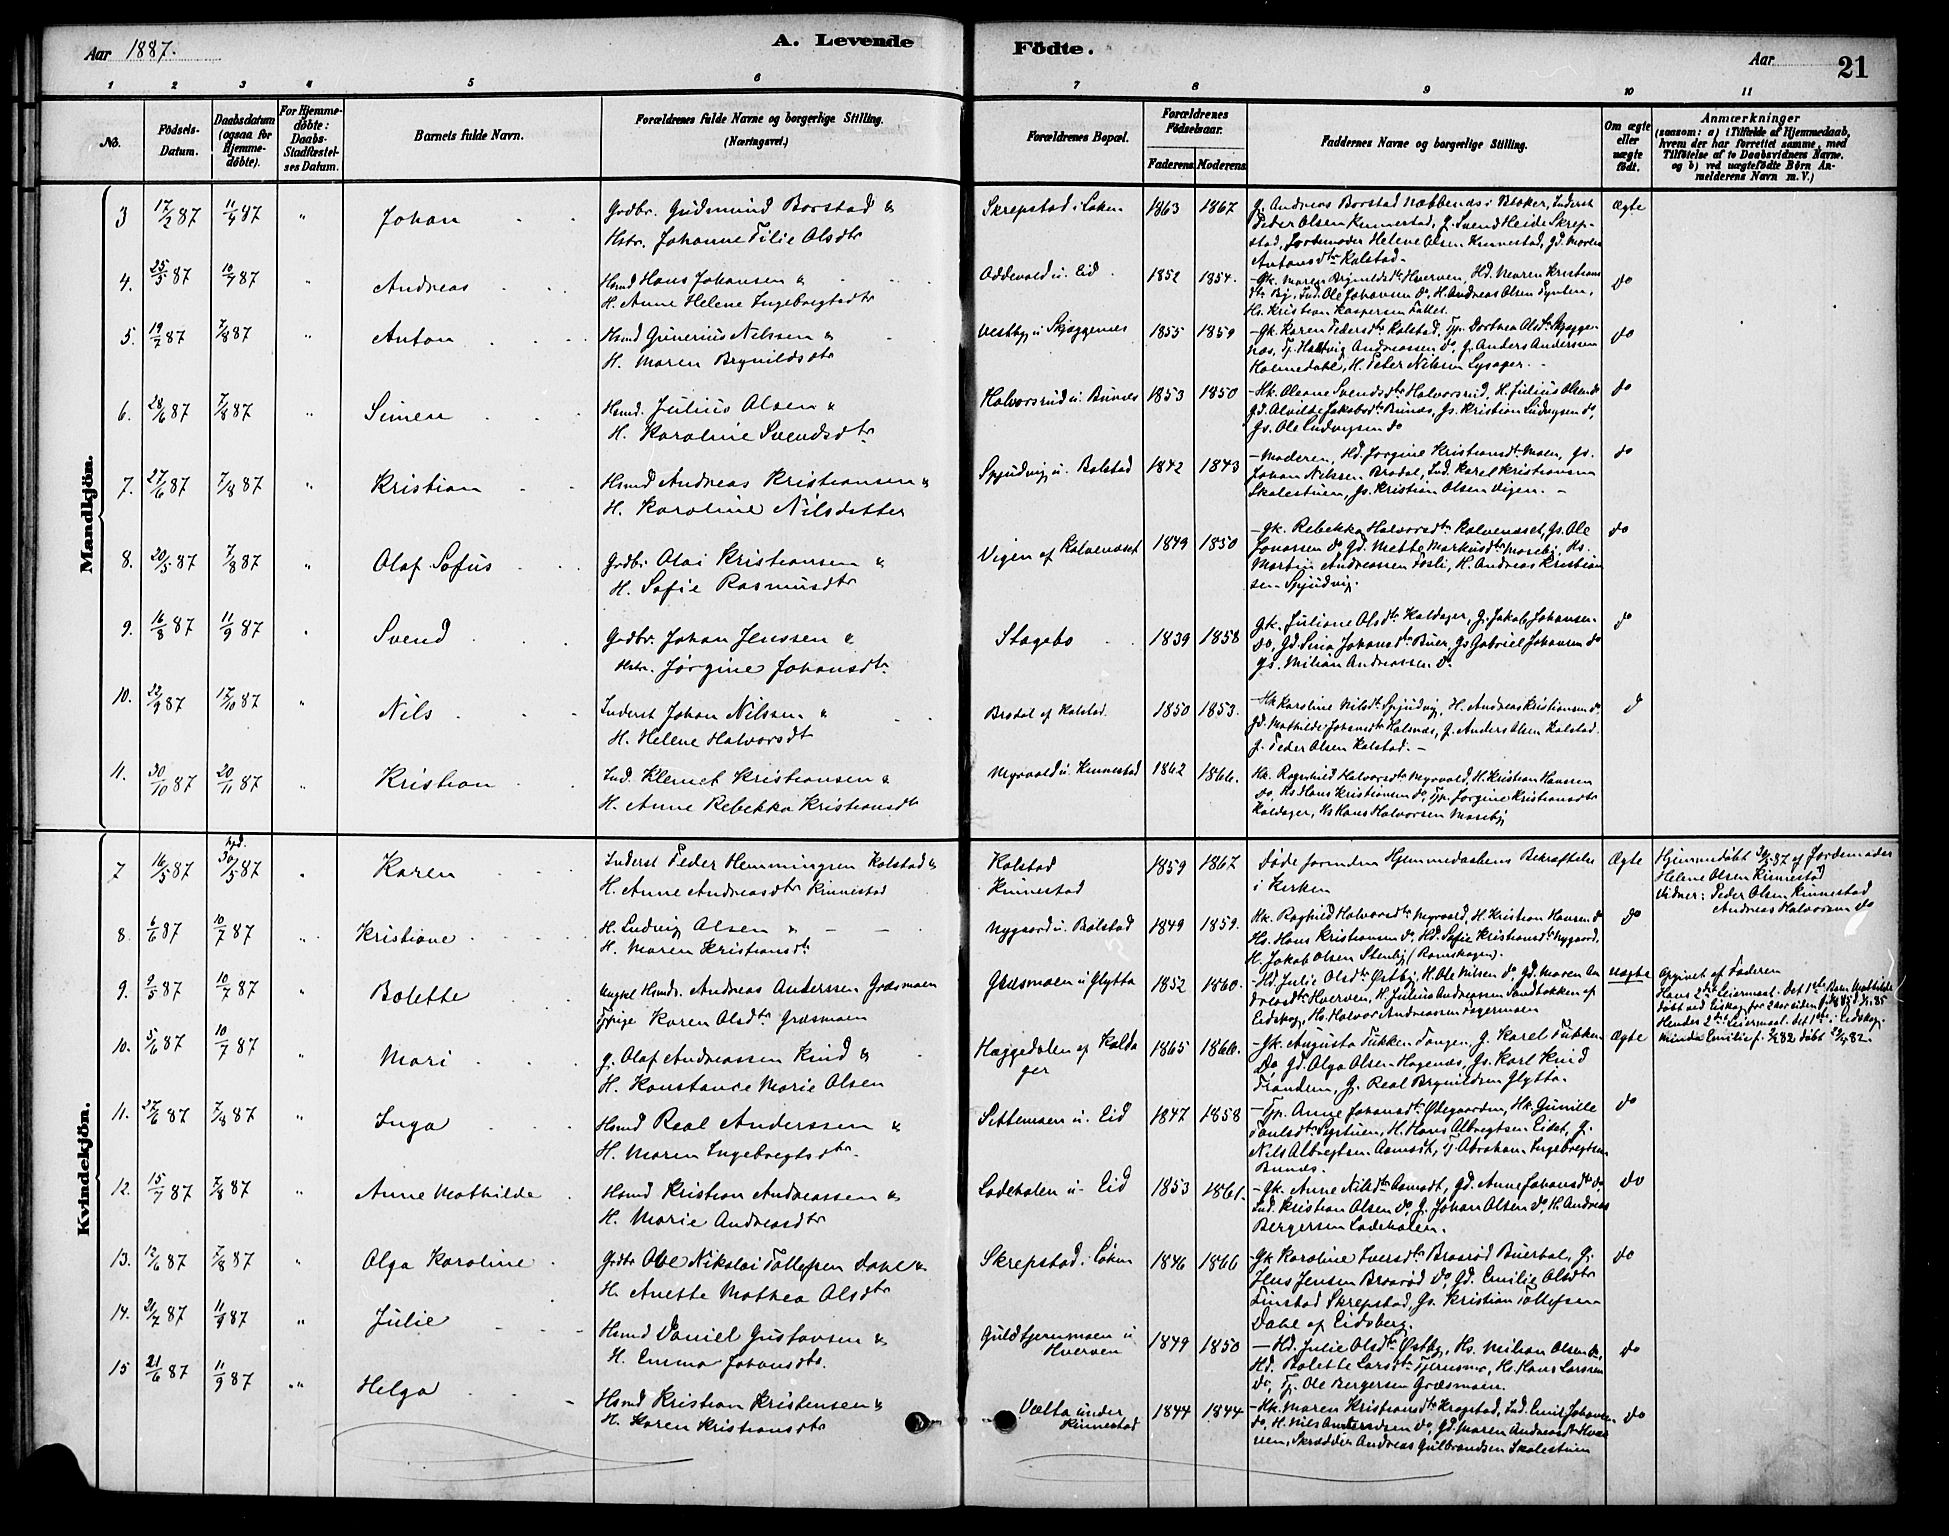 Aar 1887.
A. Levende
Födte.
Aar
21
1 2 3 4 5 6 7 8 9 10 11
No.
Födsels-
Datum.
Daabsdatum
(ogsaa for
Hjemme-
döbte).
For Hjemme-
döbte:
Daabs-
Stadfæstel-
ses Datum.
Barnets fulde Navn.
Forældrenes fulde Navne og borgerlige Stilling.
(Næringsvei.)
Forældrenes Bopæl.
Forældrenes
Födselsaar.
Faderens Moderens
Faddernes Navne og borgerlige Stilling.
Om ægte
eller
uægte
födt.
Anmærkninger
(saasom: a) i Tilfælde af Hjemmedaab,
hvem der har forrettet samme, med
Tilföielse af to Daabsvidners Navne.
og b) ved uægtefödte Börn An-
melderens Navn m. V.)
Mandkjön.
3 17/2 87 11/4 87 " Johan
Gbdbr. Gudmund Borstad "
Hstr. Johanne Tilie Olsdtr
Skrepstad i Løken 1863 1867
G. Andreas Borstad Nabbenas i Blaker, Inderst
Peder Olsen Kinnestad, G. Svend Heide Skrep-
stad, Jordemoder Helene Olsen Kinnestad, Gd. Maren
Antonsdtr Kolstad.
Ægte
4. 25/5 87 10/7 87 " Andreas
Hsmd Hans Johansen "
H. Anne Helene Ingebregtsdtr
Oddevold u. Eid 1852 1854.
-Gk. Maren Brynildsdtr Hverven, Hd. Maren Kristians
dtr By, Ind. Ole Johansen do, H. Andreas Olsen
Hs. Kristian Kaspersen
do
5. 19/7 87 7/8 87 " Anton
Hsmd Gunerius Nilssen "
H. Maren Brynildsdtr
Vestby u Skjæggenes 1855 1859
-Gk. Karen Pedersdtr Kolstad, Tjp. Dorthea Olsdtr Skjæggen
næs, Tj. Hartvig Andreassen do, G. Anders Anderssen
Holmedahl, H. Peter Nilsen Lysager.
do
6. 28/6 87 7/8 87 " Simen
Hsmd. Julius Olsen "
H. Karoline Svendsdtr
Halvorsrud u. Bunæs 1853 1850
-Hk. Oleane Svendsdtr Halvorsrud, H. Julius Olsen do
Gd. Alvilde Jakobsdtr Bunæs, Gs. Kristian Ludvigsen do,
Gs. Ole Ludvigsen do
do
7. 27/6 87 7/8 87 " Kristian
Hsmd Andreas Kristiansen "
H. Karoline Nilsdatter
Spjudvig u. Bolstad 1842 1843
-Moderen, Hd. Jørgine Kristiansdtr Moen, Gs.
Johan Nilssen Brodal, Ind. Karel Kristiansen
Skolestuen, Gs. Kristian Olsen Vigen. -
do
8. 20/5 87 7/8 87 " Olaf Sofus
Gbdbr. Olai Kristiansen "
H. Sofie Rasmusdtr
Vigen af Kolvenæset 1849 1850
-Gk. Rebekka Halvorsdtr Kolvenæset, Gs. Ole
Jonassen do, Gd. Mette Markusdtr Moseby, Hs.
Martin Andreassen Fosli, H. Andreas Kristian
sen Spjudvig.
do
9. 16/8 87 11/9 87 " Svend
Gbdbr. Johan Jenssen "
Hstr. Jørgine Johansdtr.
Slagebo 1839 1858
Gk. Juliane Olsdtr Koldager, G. Jakob Johansen
do, Gd. Sina Johansdtr Buer, Gs. Gabriel Johansen do
Gs. Milian Andreassen do
do
10. 22/9 87 17/10 87 " Nils
Inderst Johan Nilssen "
H. Helene Halvorsdtr
Brodal af Kolstad. 1850 1853.
-Hk Karoline Nilsdtr Spjudvig, H. Andreas Kristiansen do,
Gd. Mathilde Johansdtr Holsnæs, G. Anders Olsen Kolstad.
G. Peder Olsen Kolstad. -
d
11. 30/10 87 20/11 87 " Kristian
Ind. Klemet Kristiansen "
H. Anne Rebekka Kristiansdtr
Myrvold u. Kinnestad 1862 1866.
Hk. Ragnhild Halvorsdtr Myrvold, H. Kristian Hanssen
do, Hs. Hans Kristiansen do, Tjp. Jørgine Kristiansdtr
Koldager, Hs Hans Halvorsen Moseby
Kvindekjön.
7 16/5 87 hjd. 30/5 87 " Karen
Inderst Peder Hemmingsen Kolstad "
H. Anne Andreasdtr Kinnestad
Kolstad
Kinnestad
1859 1867
Døde forinden Hjemmedaabens Bekræftelse
i Kirken
Ægte
Hjemmedøbt 30/5 87 af Jordemoder
Helene Olsen Kinnestad
Vidner: Peder Olsen Kinnestad
Andreas Halvorsen do
8. 6/6 87 10/7 87 " Kristiane
H. Ludvig Olsen "
H. Maren Kristiansdtr
Nygaard u. Bolstad 1849 1859.
Hk. Ragnhild Halvorsdtr Myrvold, H. Kristian Hansen do
Hs. Hans Kristiansen do, Hd. Sofie Kristiansdtr Nygaard,
H. Jakob Olsen Stenby (Romskogen).
do
9. 9/5 87 10/7 87 " Bolette
Ungkl Hsmds. Andreas Anderssen Græsmoen
Tjpige Karen Olsdtr Græsmoen
Græsmoen u Glytta 1852 1860.
-Hd. Julie Olsdtr Østby, H. Ole Nilsen do, Gd. Maren An
dreasdtr Hverven, H. Julius Andreassen Sandbakken af
Eidskog, Hs. Halvor Andreassen Fagermoen
uægte
Opgivet af Faderen
Hans 2det Leiermaal. Det 1ste Barn Mathilde
døbt ved Eidskog for 2 aar siden
Hendes 2det Leiermaal. Det 1ste i Eidskog.
Minda Emilie f. 82 døbt 82.
10. 5/6 87 10/7 87 " Mari
G. Olaf Andreassen Kind "
H. Konstance Marie Olsen
Haggedalen af Kolda
ger
1865 1866.
-Gk. Augusta Tukken Tangen, G. Karel Tukken
do, Gd. Olga Olsen Hagenæs, Gs. Karl Kind
Trandem, G. Real Brynildsen Glytta.
Ægte
11. 27/6 87 7/8 87 " Inga
Hsmd Real Anderssen "
H. Maren Ingebregtsdtr.
Settemoen u. Eid 1847 1858
-Tjp. Anne Johansdtr Ødegaarden, Hk. Gunille
Paulsdtr Systuen, H. Hans Albregtsen Eidet, G.
Nils Albregtsen Aamodt, Tj. Abraham Ingebregtsen
Bunæs.
do
12. 15/7 87 7/8 87 " Anne Mathilde
Hsmd Kristian Andreassen "
H. Marie Andreasdtr
Ladehalen u. Eid 1853 1861.
-Gk. Anne Nilsdtr Aamodt, Gd. Anne Johansdtr do
Ind. Kristian Olsen do, G. Johan Olsen do, H. Andreas
Bergersen Ladehalen.
do
13. 12/6 87 7/8 87 " Olga Karoline
Gbdbr Ole Nikolai Tollefsen Dahl "
H. Anette Mathea Olsdtr
Skrepstad i Løken 1846 1866
-Gk Karoline Iversdtr Braarød Buerbol, G.
Jens Jensen Braarød do, Gd. Emilie Olsdtr
Finstad Skrepstad, Gs. Kristian Tollefsen
Dahl af Eidsberg.
do
14. 21/7 87 11/9 87 " Julie
Hsmd Daniel Gustavsen "
H. Emma Johansdtr.
Guldtjernmoen u
Hverven
1849 1850
-Hd. Julie Olsdtr Østby, Hs. Milian Olsen do,
Hd. Bolette Larsdtr Tjernsmo, Hs. Hans Larssen
do, Tj. Ole Bergersen Græsmoen.
do
15 21/6 87 11/9 87 " Helga
Hsmd Kristian Kristensen "
H. Karen Kristiansdtr
Vælta under
Kinnestad
1844 1844
-Hk. Maren Kristiansdtr Krogstad, Ind. Emil Johansen
do, H. Nils Amundsen do, Gd. Maren Andreasdtr Hver
ven, Skrædder Andreas Gulbrandsen Skolestuen
do